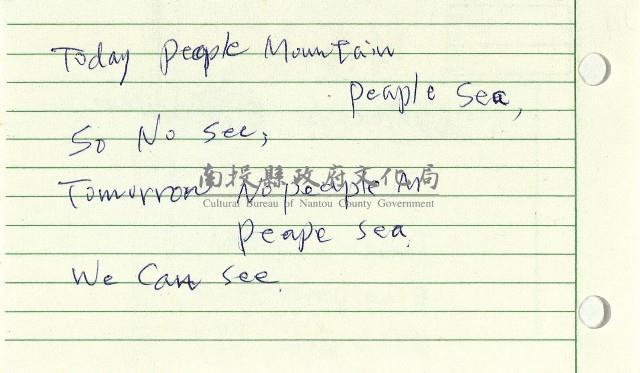 Today People Mountain
People Sea,
So No See,
Tomorrow No people M
南投縣政府文化局
Cultural Bureau of Nantou County Government
Peape Sea.
We Can See.